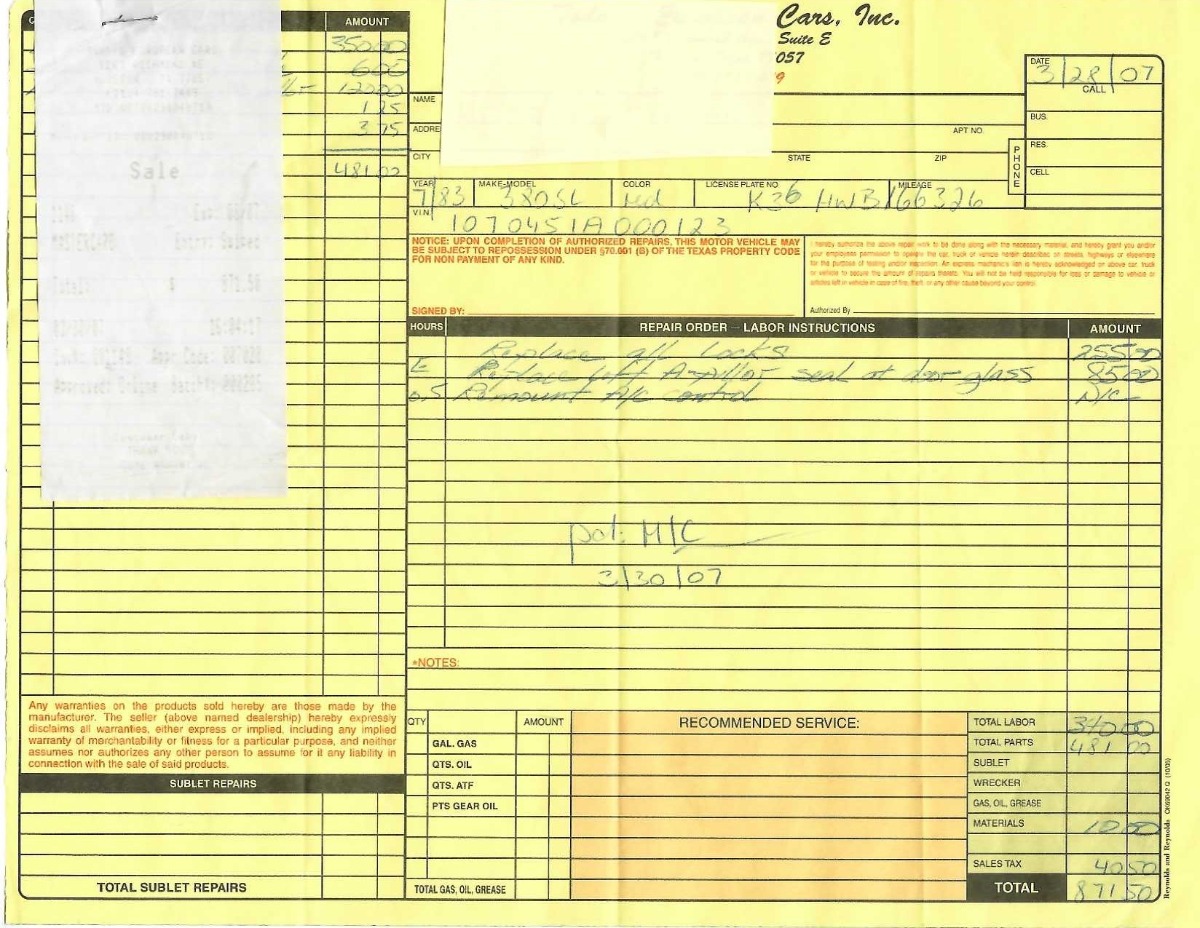 Cars, Inc.
Suite E
057
9
AMOUNT
350 00
6 00
120 00
1 25
3 75
481 00
Sale
DATE
3/28/07
CALL
NAME
BUS.
ADDRE
APT NO.
PHONE
RES.
CITY
STATE
ZIP
CELL
YEAR
7/83
MAKE-MODEL
380SL
COLOR
red
LICENSE PLATE NO.
K36 HWB
MILEAGE
166326
V.I.N.
1070451A000123
NOTICE: UPON COMPLETION OF AUTHORIZED REPAIRS, THIS MOTOR VEHICLE MAY
BE SUBJECT TO REPOSSESSION UNDER §70.001 (B) OF THE TEXAS PROPERTY CODE
FOR NON PAYMENT OF ANY KIND.
SIGNED BY:
I hereby authorize the above repair work to be done along with the necessary material, and hereby grant you and/or
your employees permission to operate the car, truck or vehicle herein described on streets, highways or elsewhere
for the purpose of testing and/or inspection. An express mechanic's lien is hereby acknowledged on above car, truck
or vehicle to secure the amount of repairs thereto. You will not be held responsible for loss or damage to vehicle or
articles left in vehicle in case of fire, theft, or any other cause beyond your control.
Authorized By
HOURS
REPAIR ORDER – LABOR INSTRUCTIONS
AMOUNT
Replace all locks 255 00
Replace left A-pillar seal at door glass 85 00
0.5 Remount A/C control N/C
pd. M/C
3/30/07
*NOTES:
Any warranties on the products sold hereby are those made by the
manufacturer. The seller (above named dealership) hereby expressly
disclaims all warranties, either express or implied, including any implied
warranty of marchantability or fitness for a particular purpose, and neither
assumes nor authorizes any other person to assume for it any liability in
connection with the sale of said products.
SUBLET REPAIRS
TOTAL SUBLET REPAIRS
QTY
AMOUNT
GAL. GAS
QTS. OIL
QTS. ATF
PTS GEAR OIL
TOTAL GAS, OIL, GREASE
RECOMMENDED SERVICE:
TOTAL LABOR 340 00
TOTAL PARTS 481 00
SUBLET
WRECKER
GAS, OIL, GREASE
MATERIALS 10 00
SALES TAX 40 50
TOTAL 871 50
Reynolds and Reynolds